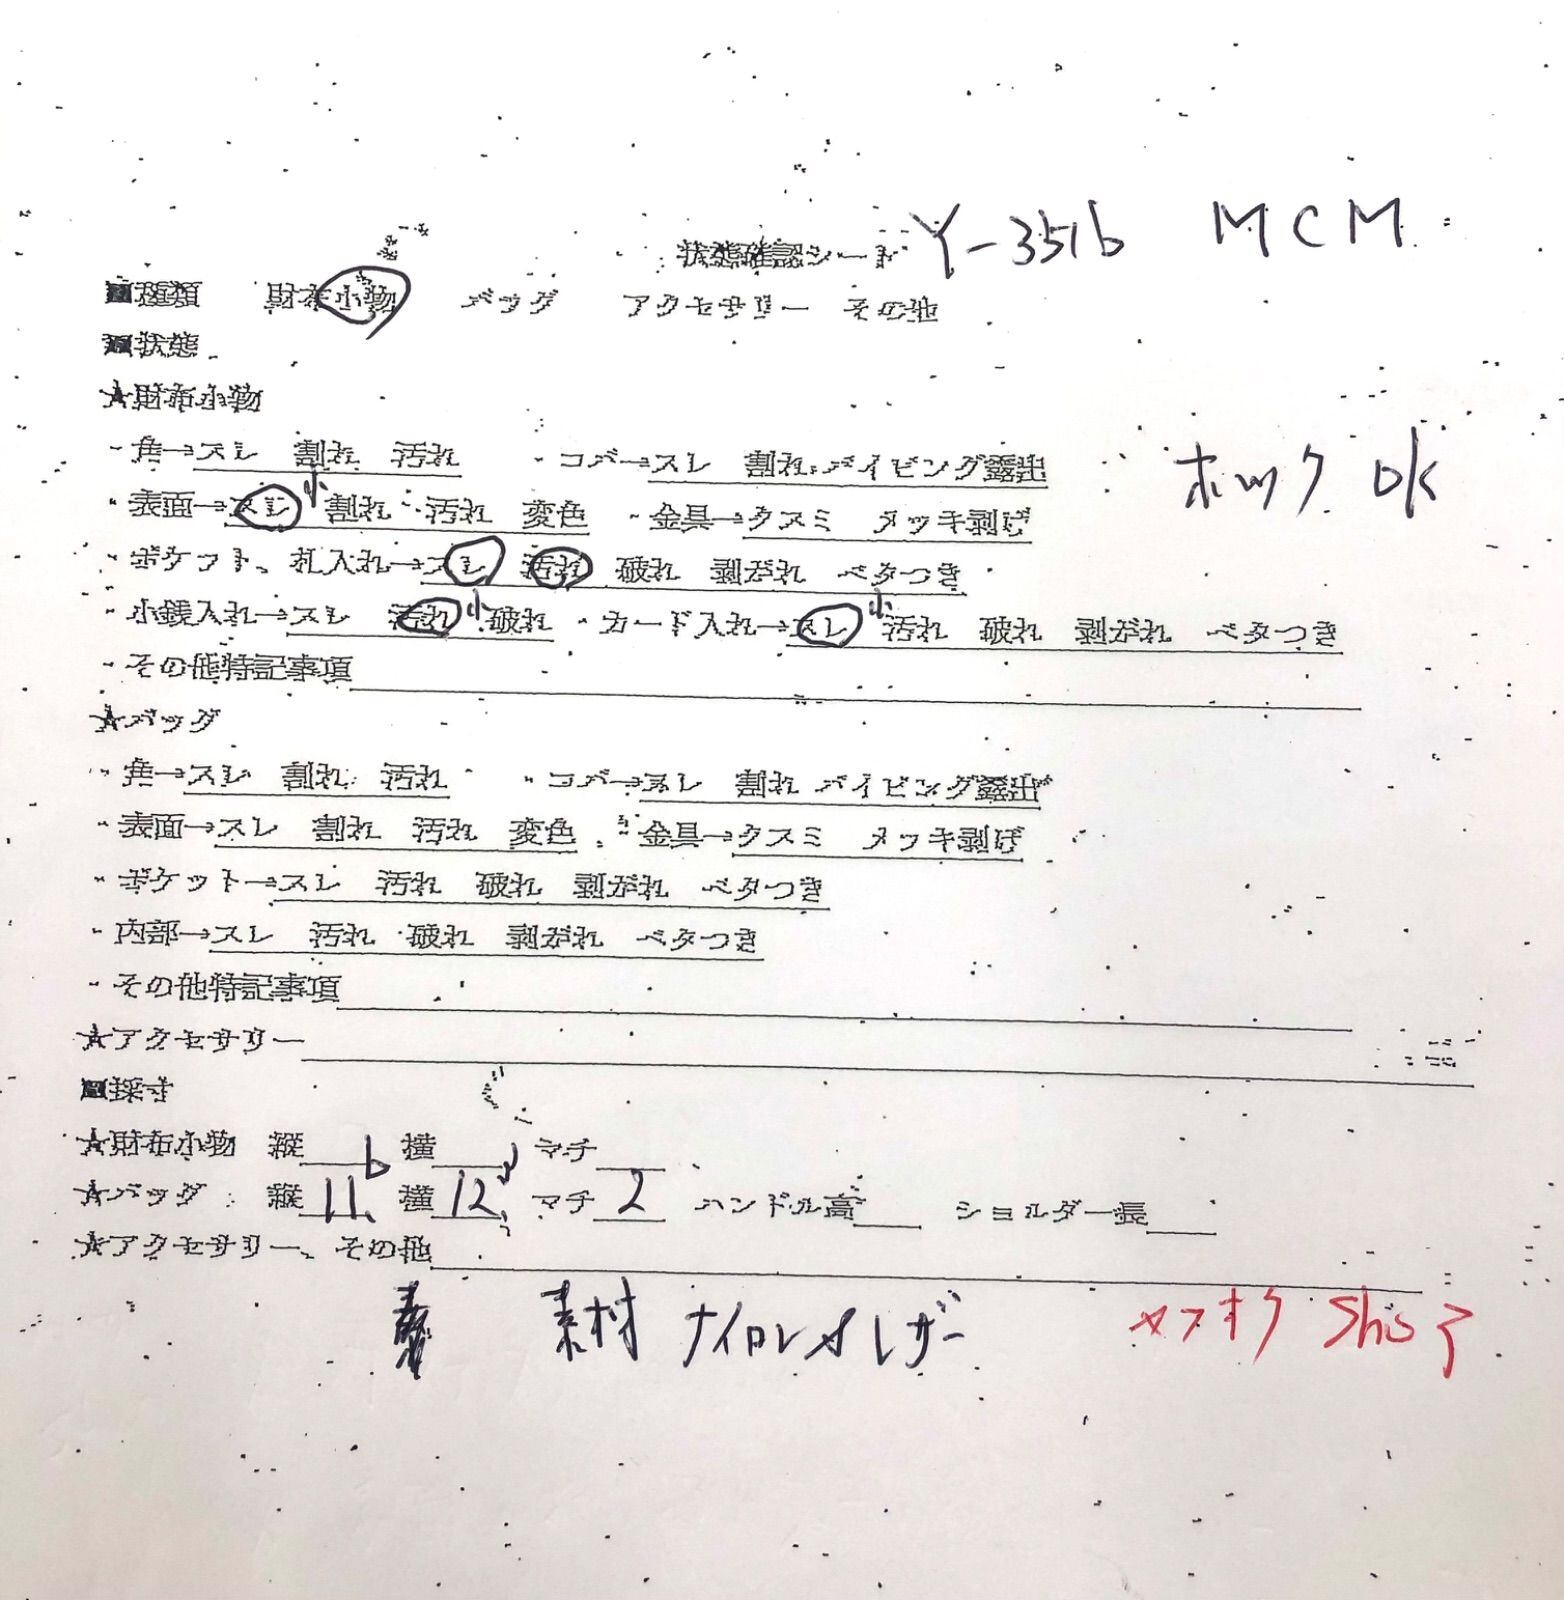 状態確認シート Y-3516 MCM
■種類 財布小物 バッグ アクセサリー その他
■状態
★財布小物
・角→スレ 割れ 汚れ ・コバ→スレ 割れ パイピング露出 ホック OK
・表面→スレ 小 割れ 汚れ 変色 ・金具→クスミ メッキ剥げ
・ポケット、札入れ→スレ 汚れ 破れ 剥がれ ベタつき
・小銭入れ→スレ 汚れ 小 破れ ・カード入れ→スレ 小 汚れ 破れ 剥がれ ベタつき
・その他特記事項
★バッグ
・角→スレ 割れ 汚れ ・コバ→スレ 割れ パイピング露出
・表面→スレ 割れ 汚れ 変色 ・金具→クスミ メッキ剥げ
・ポケット→スレ 汚れ 破れ 剥がれ ベタつき
・内部→スレ 汚れ 破れ 剥がれ ベタつき
・その他特記事項
★アクセサリー
■採寸
★財布小物 縦 横 マチ
★バッグ 縦 11 横 12 マチ 2 ハンドル高 ショルダー長
★アクセサリー、その他
素材 レザー